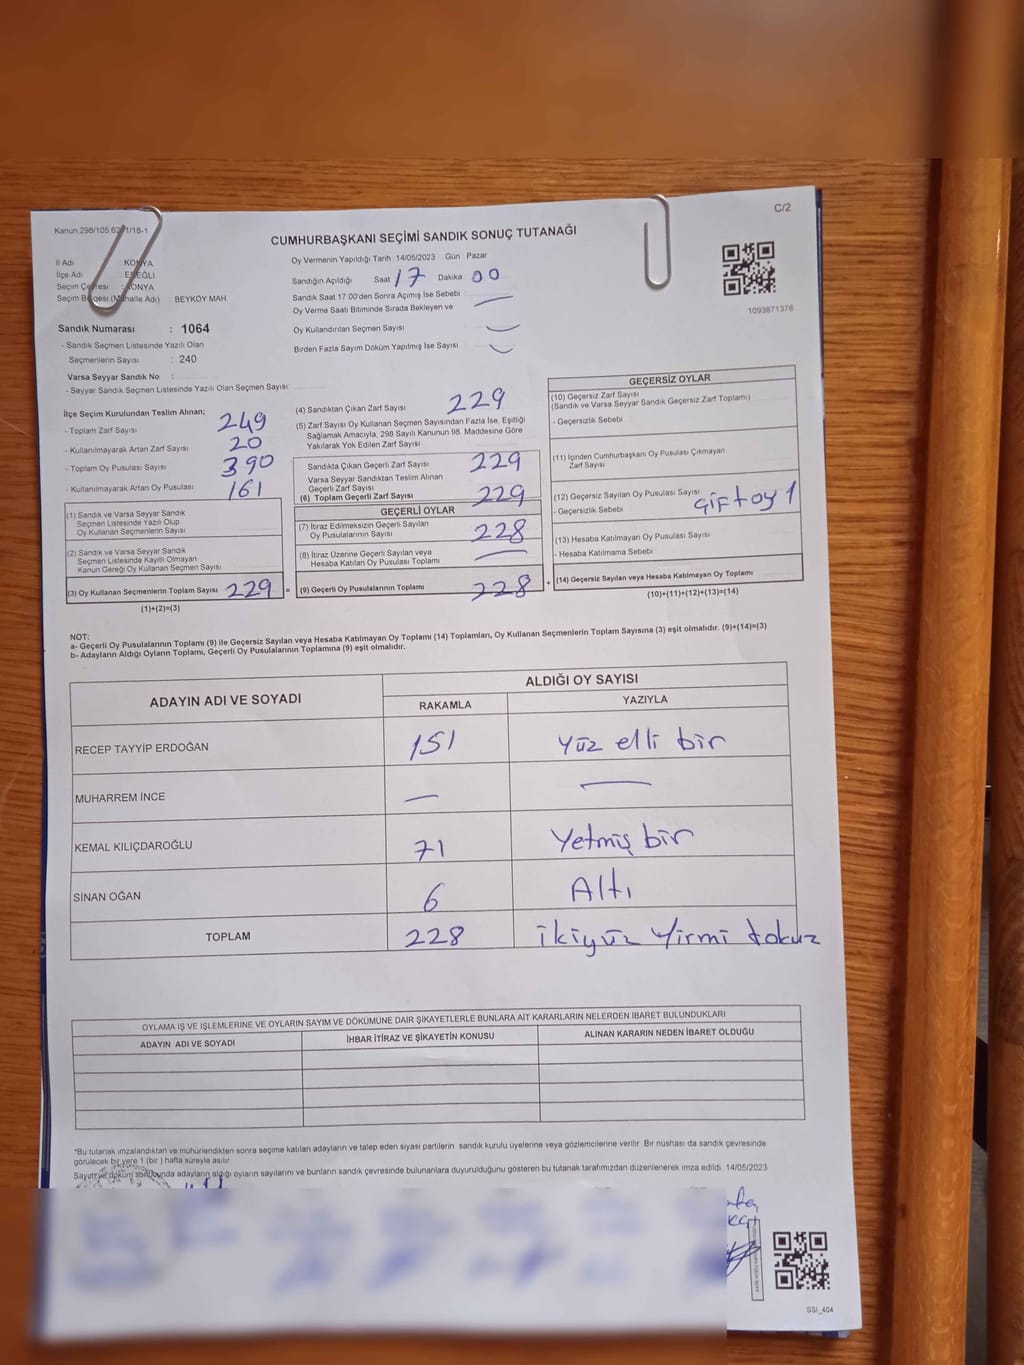 C/2
Kanun:298/105.62 1/18-1
CUMHURBAŞKANI SEÇİMİ SANDIK SONUÇ TUTANAĞI
İl Adı : KONYA
İlçe Adı : EREĞLİ
Seçim Çevresi : KONYA
Seçim Bölgesi (Mahalle Adı) : BEYKÖY MAH.
Sandık Numarası : 1064
- Sandık Seçmen Listesinde Yazılı Olan
Seçmenlerin Sayısı : 240
Varsa Seyyar Sandık No :
- Seyyar Sandık Listesinde Yazılı Olan Seçmen Sayısı:
Oy Vermenin Yapıldığı Tarih :14/05/2023 Gün Pazar
Sandığın Açıldığı Saat 17 Dakika 00
Sandık Saat 17.00'den Sonra Açımış İse Sebebi
Oy Verme Saati Bitiminde Sırada Bekleyen ve —
Oy Kullandırılan Seçmen Sayısı —
Birden Fazla Sayım Döküm Yapılmış İse Sayısı —
1093871378
İlçe Seçim Kurulundan Teslim Alınan;
- Toplam Zarf Sayısı 249
- Kullanılmayarak Artan Zarf Sayısı 20
- Toplam Oy Pusulası Sayısı 390
- Kullanılmayarak Artan Oy Pusulası 161
(1) Sandık ve Varsa Seyyar Sandık
Seçmen Listesinde Yazılı Olup
Oy Kullanan Seçmenlerin Sayısı
(2) Sandık ve Varsa Seyyar Sandık
Seçmen Listesinde Kayıtlı Olmayan
Kanun Gereği Oy Kullanan Seçmen Sayısı
(3) Oy Kullanan Seçmenlerin Toplam Sayısı 229 =
(1)+(2)=(3)
(4) Sandıktan Çıkan Zarf Sayısı 229
(5) Zarf Sayısı Oy Kullanan Seçmen Sayısından Fazla İse, Eşitliği
Sağlamak Amacıyla, 298 Sayılı Kanunun 98. Maddesine Göre
Yakılarak Yok Edilen Zarf Sayısı
Sandıkta Çıkan Geçerli Zarf Sayısı 229
Varsa Seyyar Sandıktan Teslim Alınan
Geçerli Zarf Sayısı
(6) Toplam Geçerli Zarf Sayısı 229
GEÇERLİ OYLAR
(7) İtiraz Edilmeksizin Geçerli Sayılan
Oy Pusulalarının Sayısı 228
(8) İtiraz Üzerine Geçerli Sayılan veya
Hesaba Katılan Oy Pusulası Toplamı —
(9) Geçerli Oy Pusulalarının Toplamı 228 +
GEÇERSİZ OYLAR
(10) Geçersiz Zarf Sayısı
(Sandık ve Varsa Seyyar Sandık Geçersiz Zarf Toplamı)
- Geçersizlik Sebebi
(11) İçinden Cumhurbaşkanı Oy Pusulası Çıkmayan
Zarf Sayısı
(12) Geçersiz Sayılan Oy Pusulası Sayısı
- Geçersizlik Sebebi Çift oy 1
(13) Hesaba Katılmayan Oy Pusulası Sayısı
- Hesaba Katılmama Sebebi
(14) Geçersiz Sayılan veya Hesaba Katılmayan Oy Toplamı
(10)+(11)+(12)+(13)=(14)
NOT:
a- Geçerli Oy Pusulalarının Toplamı (9) ile Geçersiz Sayılan veya Hesaba Katılmayan Oy Toplamı (14) Toplamları, Oy Kullanan Seçmenlerin Toplam Sayısına (3) eşit olmalıdır. (9)+(14)=(3)
b- Adayların Aldığı Oyların Toplamı, Geçerli Oy Pusulalarının Toplamına (9) eşit olmalıdır.
ADAYIN ADI VE SOYADI ALDIĞI OY SAYISI
RAKAMLA YAZIYLA
RECEP TAYYİP ERDOĞAN 151 Yüz elli bir
MUHARREM İNCE — —
KEMAL KILIÇDAROĞLU 71 Yetmiş bir
SİNAN OĞAN 6 Altı
TOPLAM 228 ikiyüz Yirmi dokuz
OYLAMA İŞ VE İŞLEMLERİNE VE OYLARIN SAYIM VE DÖKÜMÜNE DAİR ŞİKAYETLERLE BUNLARA AİT KARARLARIN NELERDEN İBARET BULUNDUKLARI
ADAYIN ADI VE SOYADI İHBAR İTİRAZ VE ŞİKAYETİN KONUSU ALINAN KARARIN NEDEN İBARET OLDUĞU
*Bu tutanak imzalandıktan ve mühürlendikten sonra seçime katılan adayların ve talep eden siyasi partilerin sandık kurulu üyelerine veya gözlemcilerine verilir. Bir nüshası da sandık çevresinde
görülecek bir yere 1 (bir ) hafta süreyle asılır.
Sayım ve döküm sonucunda adayların aldığı oyların sayılarını ve bunların sandık çevresinde bulunanlara duyurulduğunu gösteren bu tutanak tarafımızdan düzenlenerek imza edildi. 14/05/2023
SSI_404